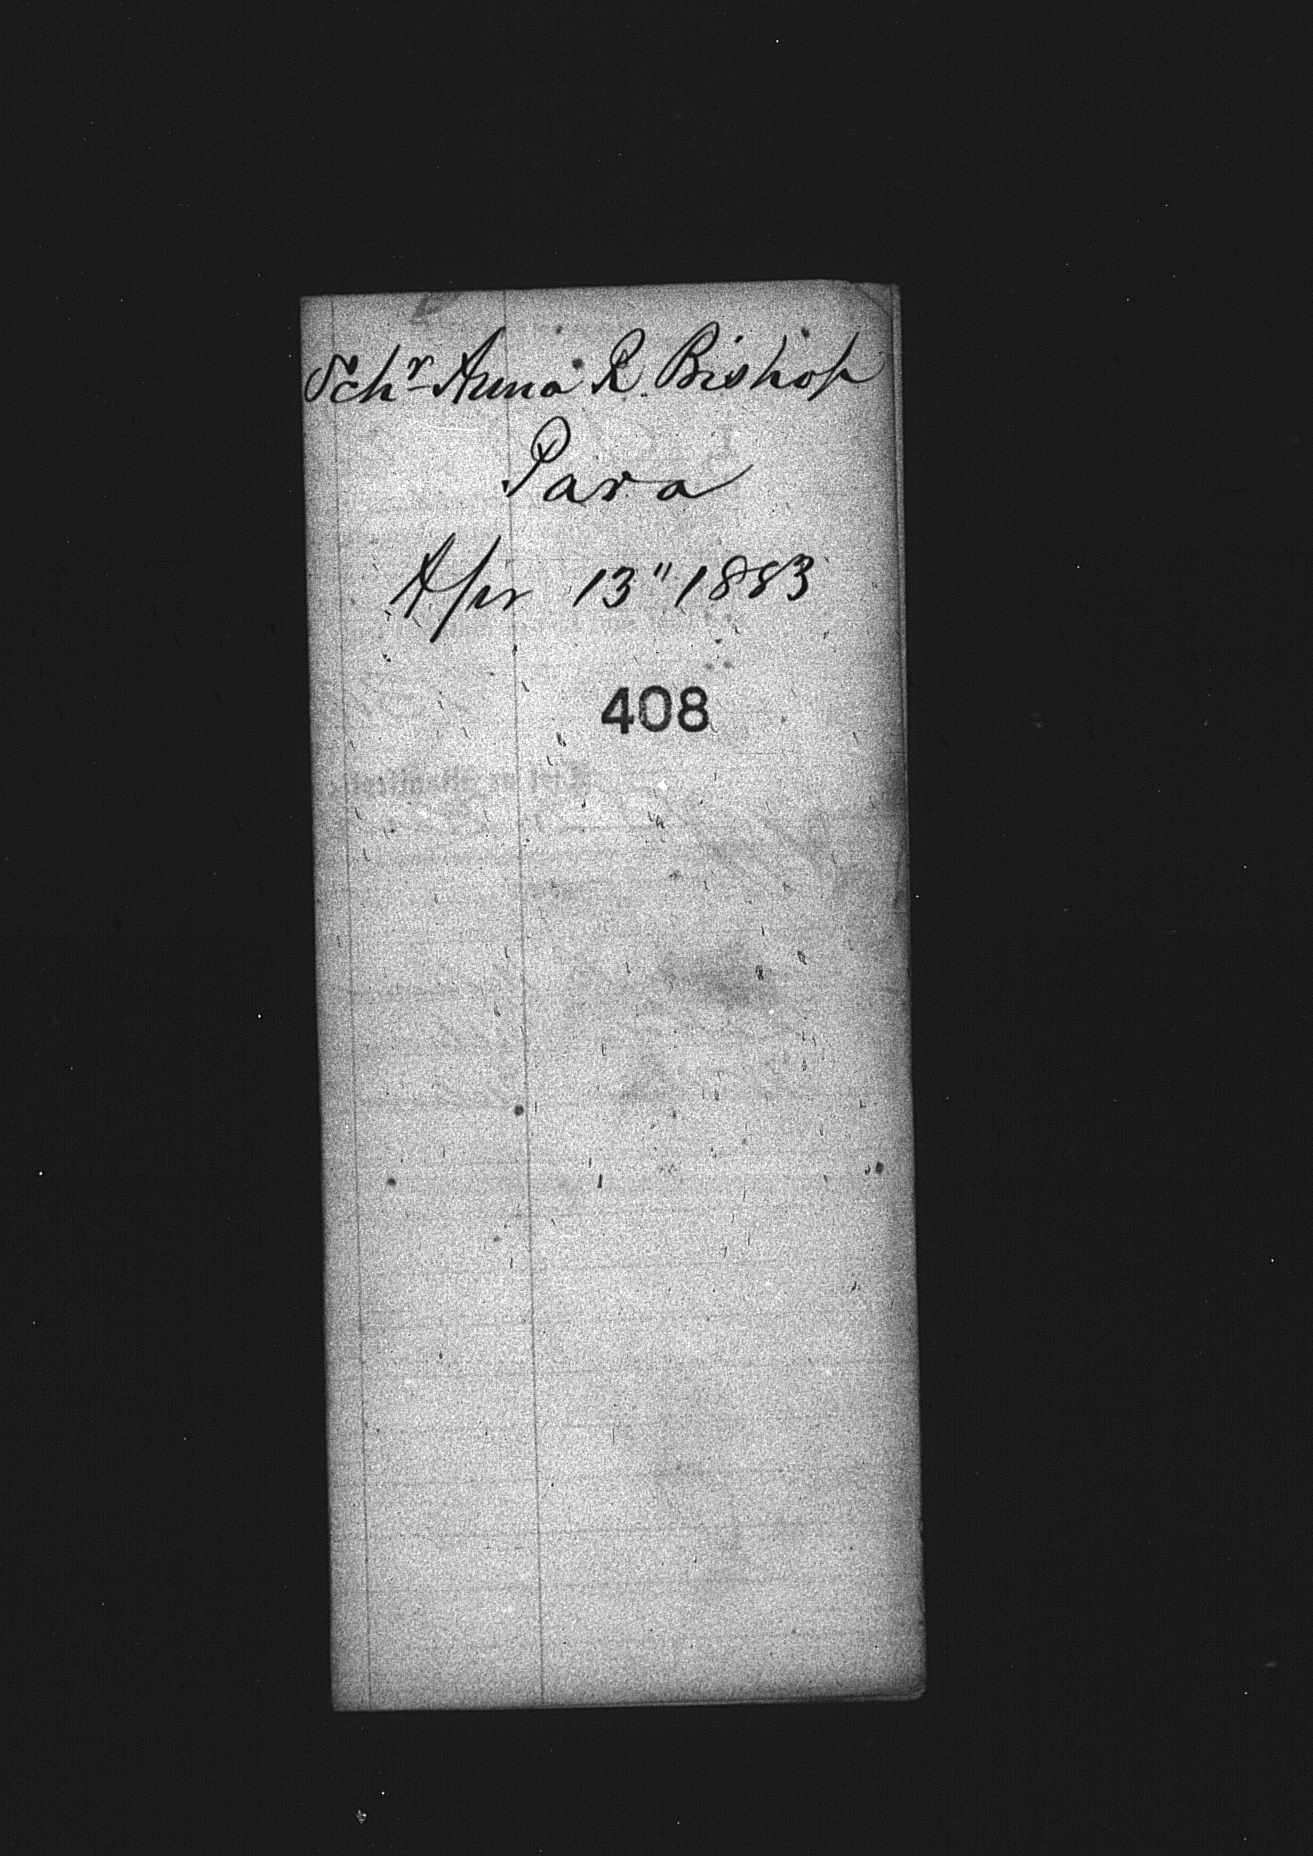 Schr Anna R. Bishop
Para
Apr 13" 1883
408